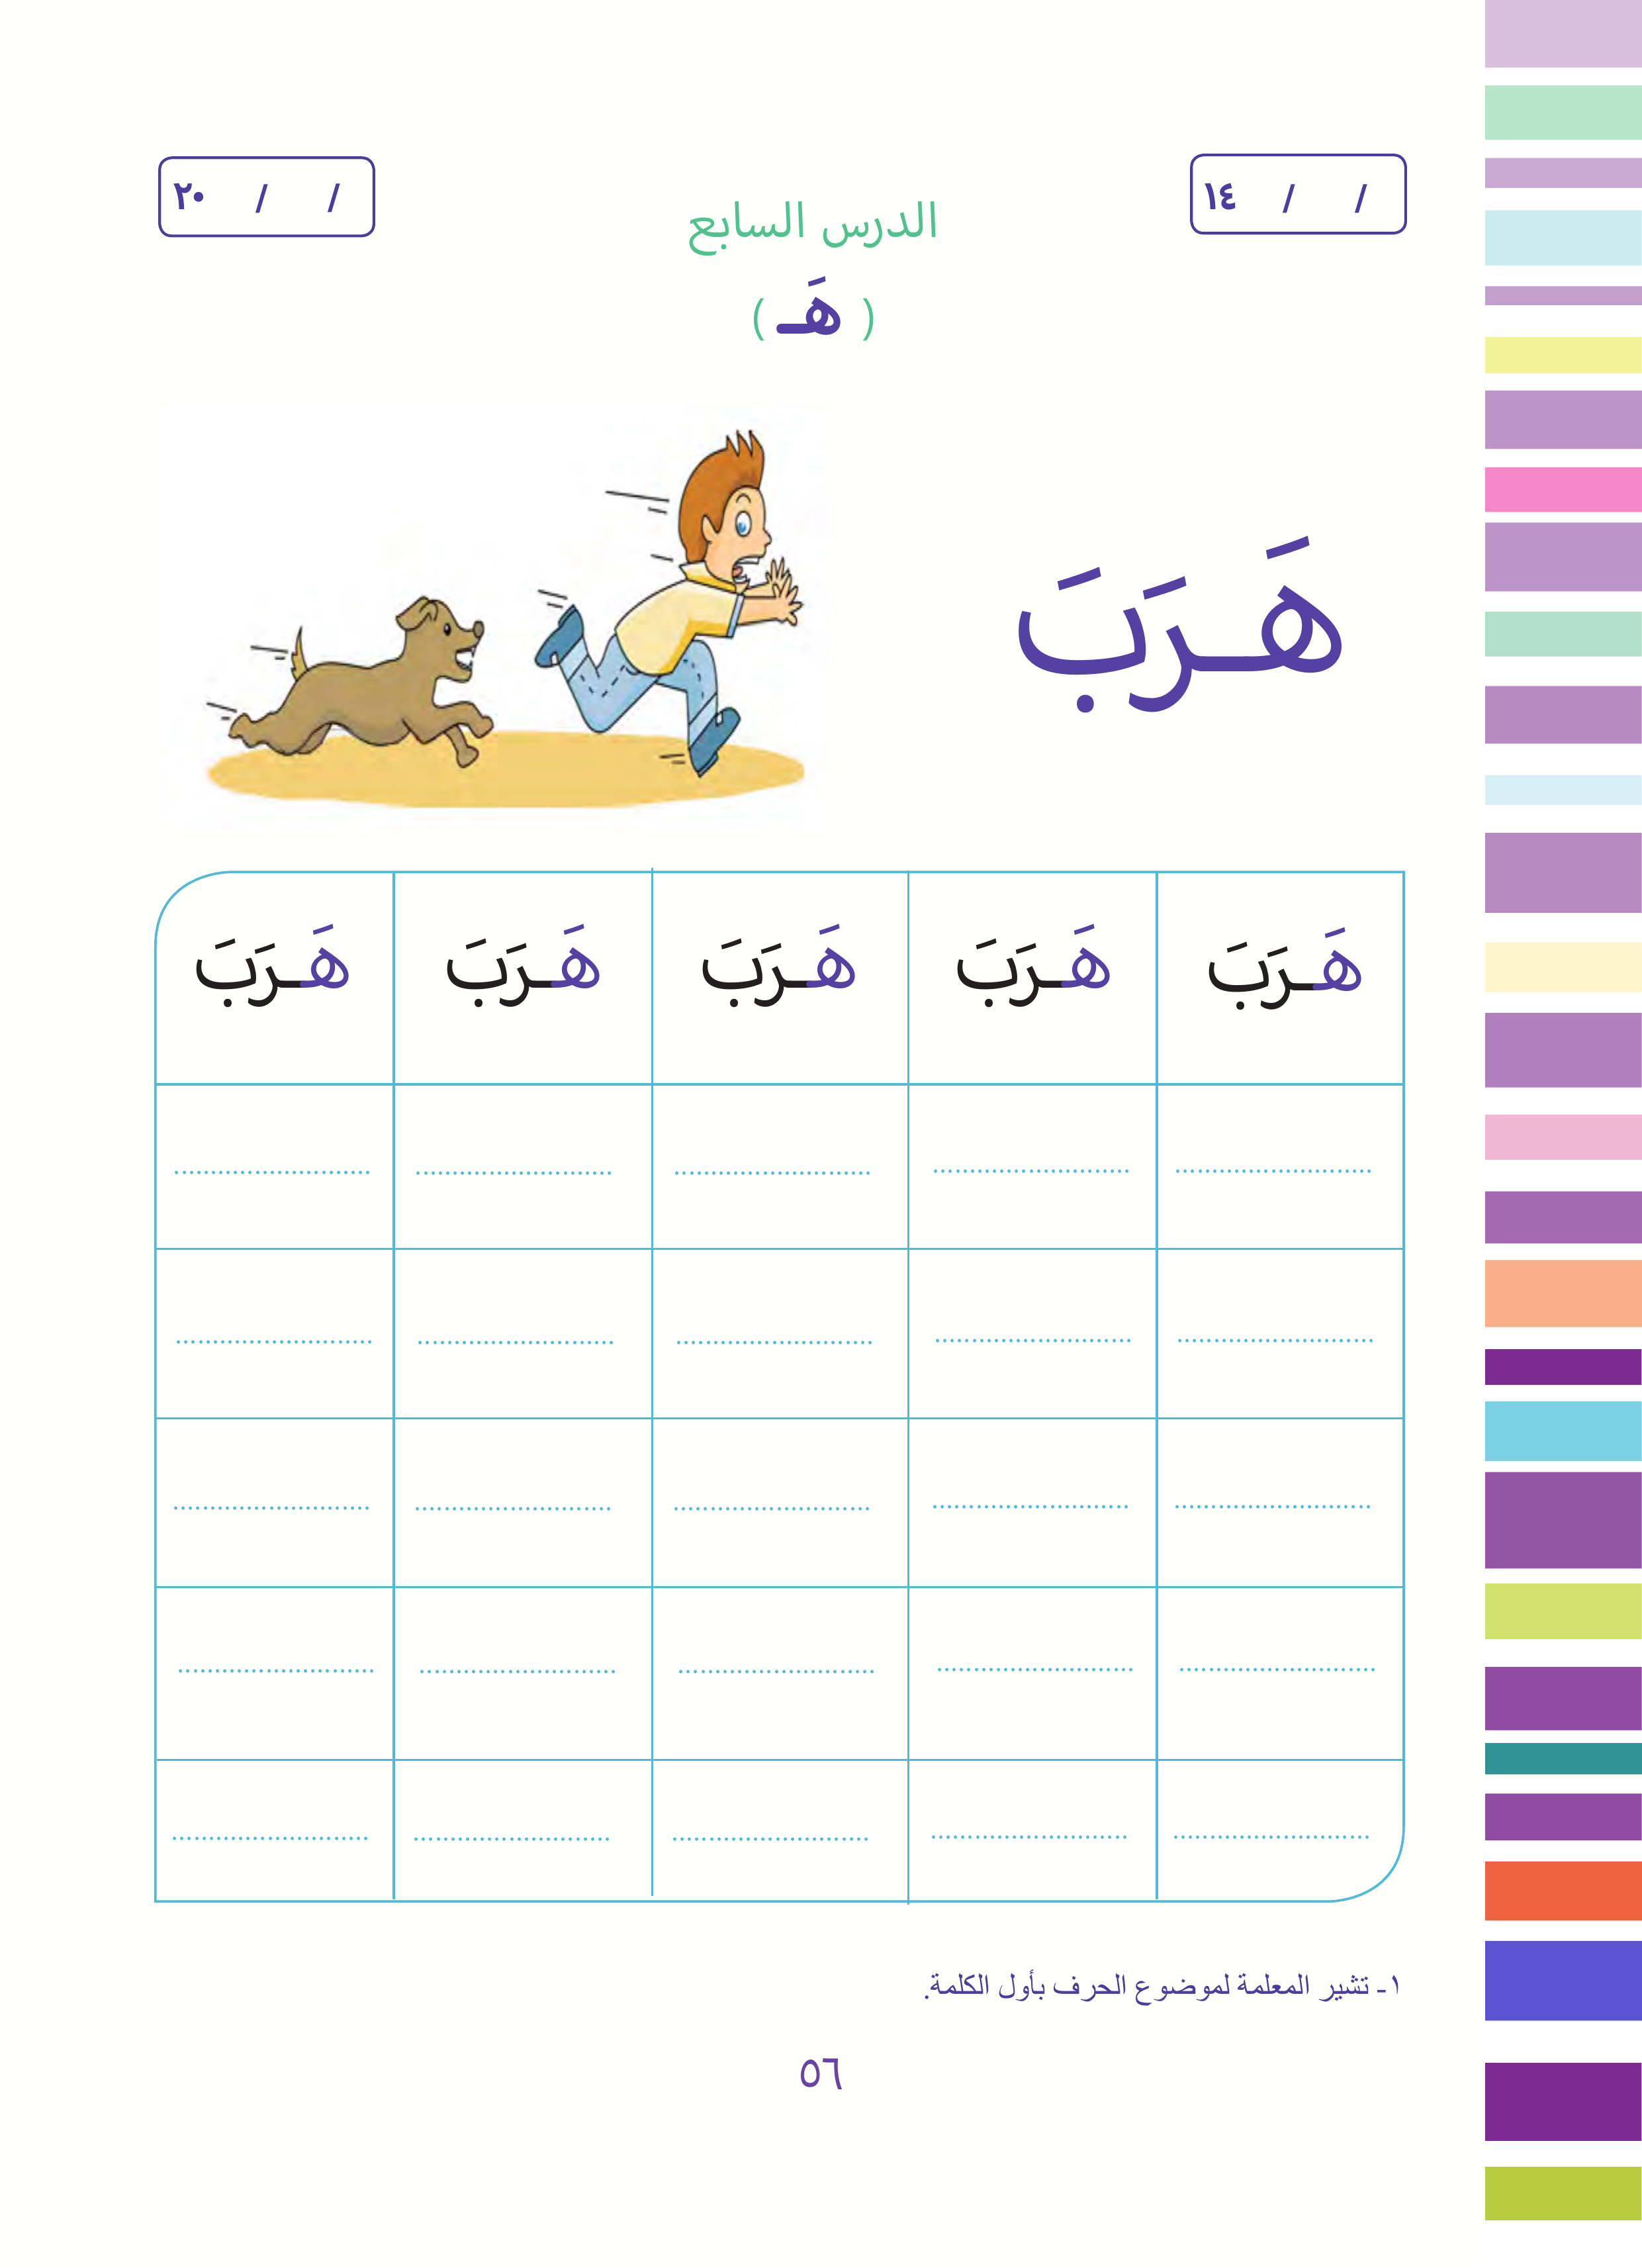 / / ١٤
/ / ٢٠
الدرس السابع
( هَـ )
هَـرَبَ
هَـرَبَ هَـرَبَ هَـرَبَ هَـرَبَ هَـرَبَ
١- تشير المعلمة لموضوع الحرف بأول الكلمة.
٥٦